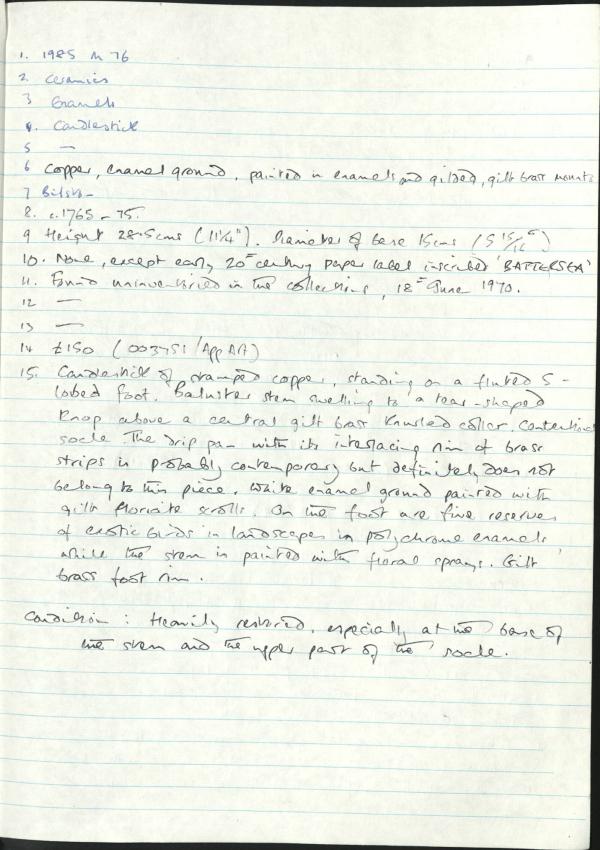 1. 1985 M 76
2. Ceramics
3 Enamels
4. Candlestick
5 —
6 Copper, enamel ground, painted in enamels and gilded, gilt brass mounts
7 Bilston
8. c.1765 - 75.
9 Height 28.5cms (11¼"). Diameter of base 15cms (5 15/16")
10. None, except early 20th century paper label inscribed 'BATTERSEA'
11. Found uninventoried in the collections, 18th June 1970.
12 —
13 —
14 £150 (003751/App Art)
15. Candlestick of stamped copper, standing on a fluted 5-
lobed foot. Baluster stem swelling to a tear-shaped
knop above a central gilt brass knurled collar.
socle The drip pan with its interlacing rim of brass
strips is probably contemporary but definitely does not
belong to this piece. White enamel ground painted with
gilt floriate scrolls. On the foot are five reserves
of exotic birds in landscapes in polychrome enamels
while the stem is painted with floral sprays. Gilt
brass foot rim.
Condition: Heavily restored, especially at the base of
the stem and the upper part of the socle.